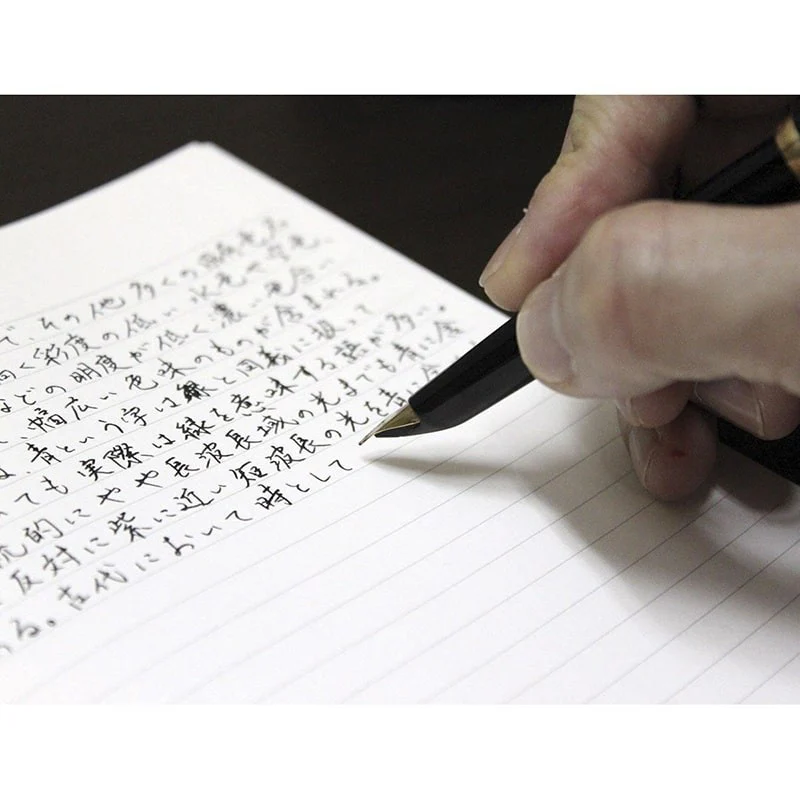 でその他多くの
く彩度の低い水色や空色、
などの明度が低く濃い色合い
、幅広い色味のものが含まれる。
青という字は緑と同義に扱って
ても実際は緑を意味する語が多い。
的にやや長波長域の光までも青に含
反対に紫に近い短波長の光を青に
る。古代において時として